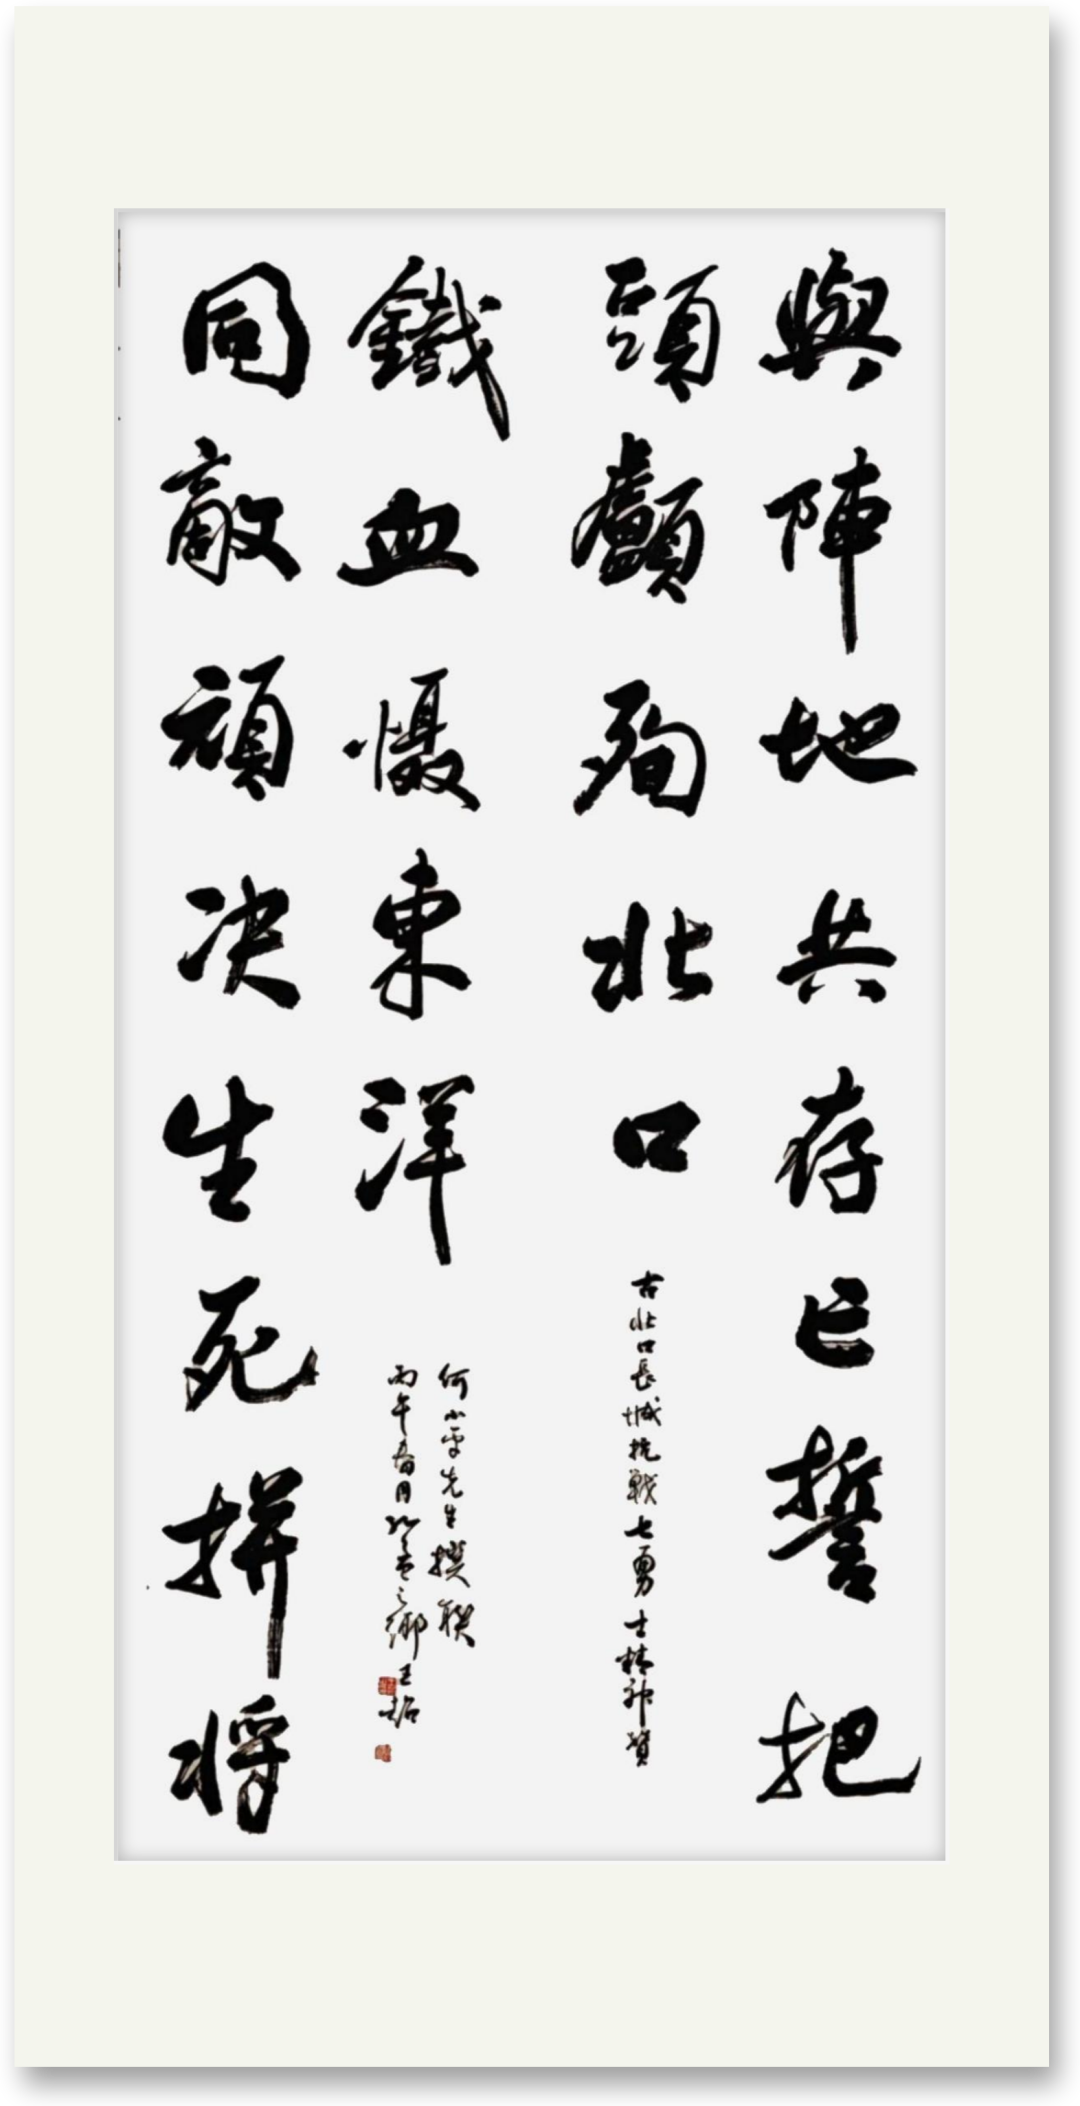 與陣地共存亡誓把
頭顱殉北口
古北口長城抗戰七勇士精神贊
同敵頑决生死拼将
鐵血慑東洋
何小先生撰聯
丙午春月孔孟之鄉王